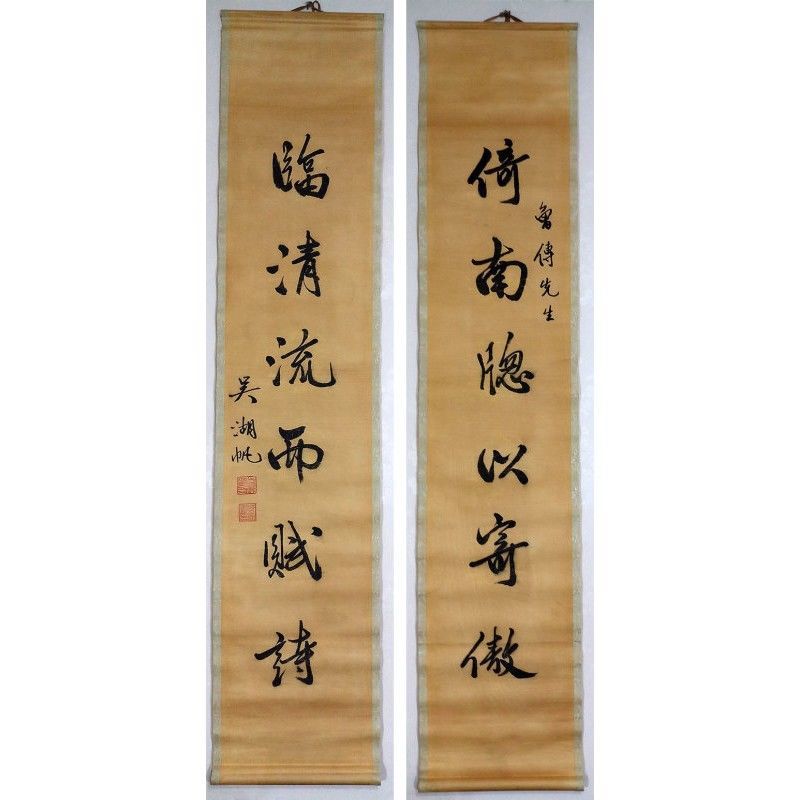 倚南牕以寄傲
魯傳先生
臨清流而賦詩
吳湖帆